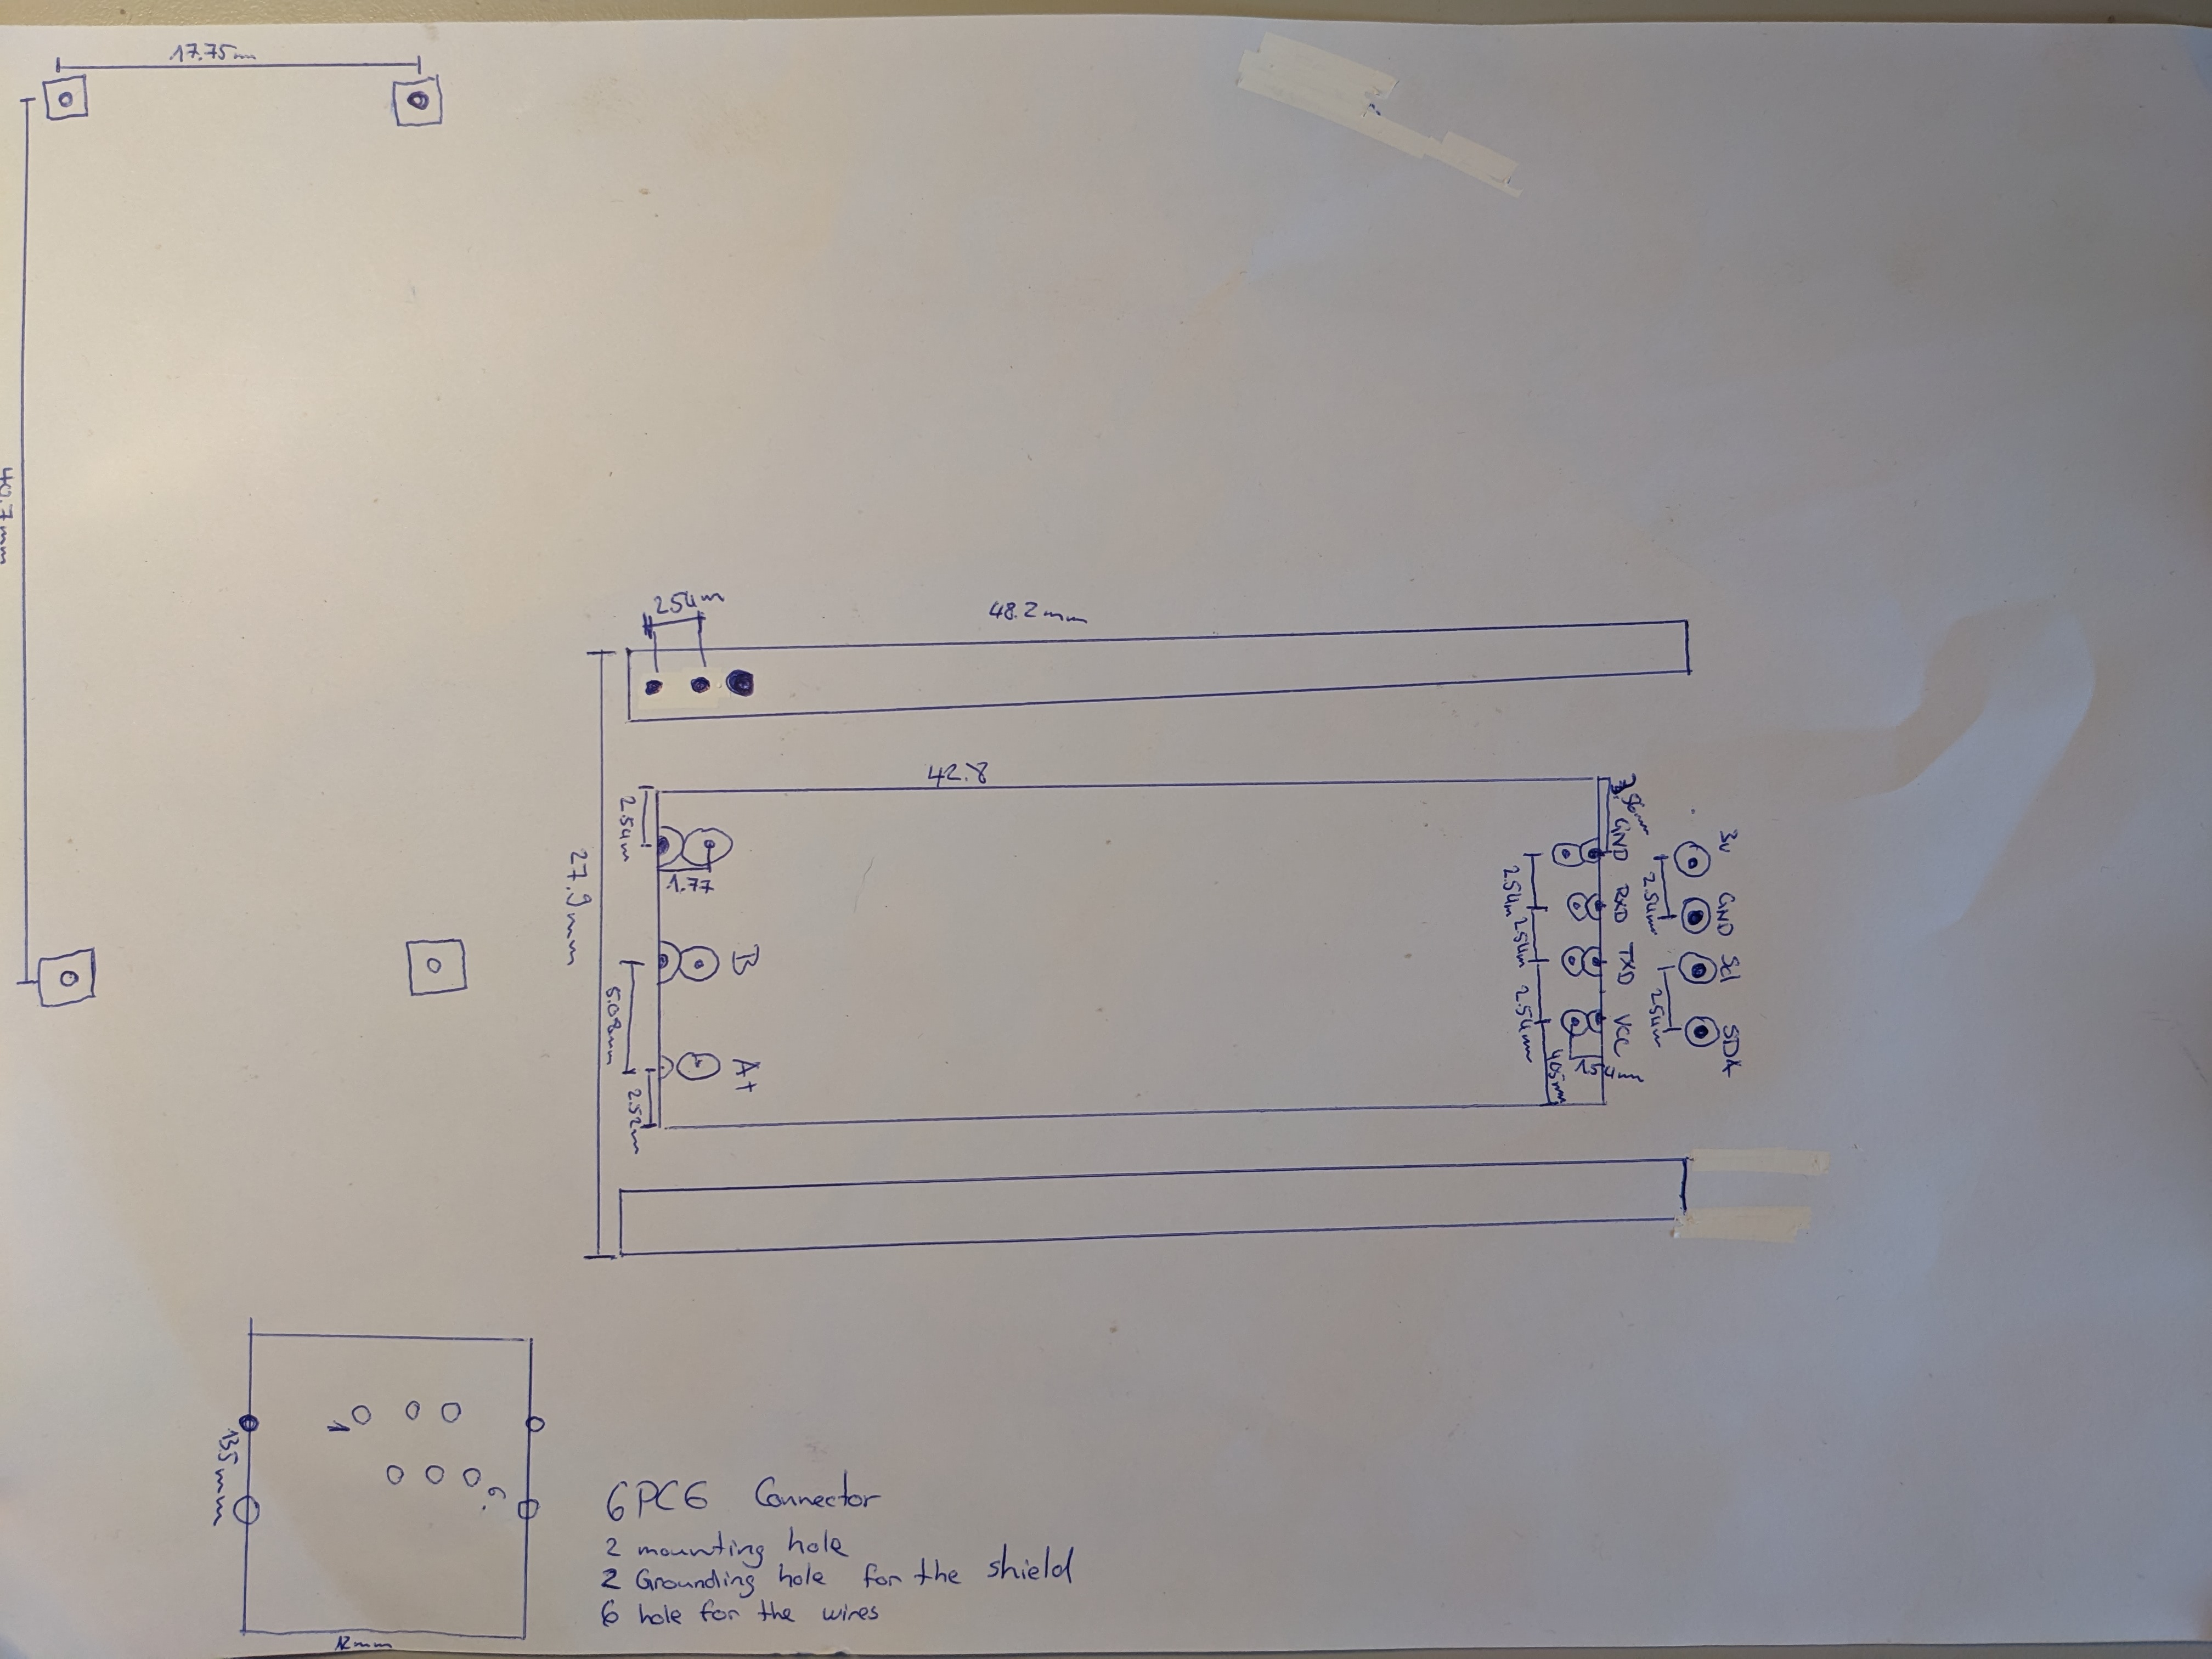 17.75mm
40.7mm
2.54m
48.2mm
42.8
2.54m
1.77
27.9mm
B
5.08mm
A+
2.52m
GND
RXD
TXD
VCC
2.54m
2.54m
2.54m
4.05mm
1.54mm
3v
GND
Scl
SDA
2.54m
2.54m
1
6.
13.5mm
12mm
6PC6 Connector
2 mounting hole
2 Grounding hole for the shield
6 hole for the wires